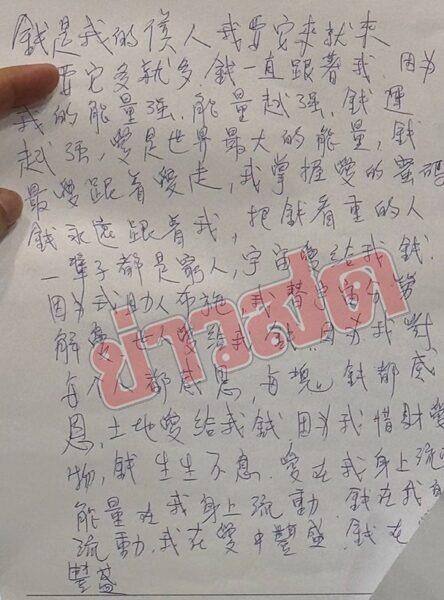 錢是我的僕人我要它來就來
要它多就多錢一直跟著我,因为
我的能量强,能量越强,錢運
越强,愛是世界最大的能量,錢
最愛跟着愛走,我掌握愛的蜜碼
錢永遠跟着我,把錢看重的人
一輩子都是窮人,宇宙愛給我錢
因为我助人布施 我替宇宙分
解 给我錢 因为我對
每个人都感恩,每 錢都感
恩,土地愛给我錢 因为我惜財愛
物,錢生生不息 愛在我身上流
能量在我身上流動 錢在我身
流動 我在愛中豐盛 錢在
豐盛
ข่าวสด